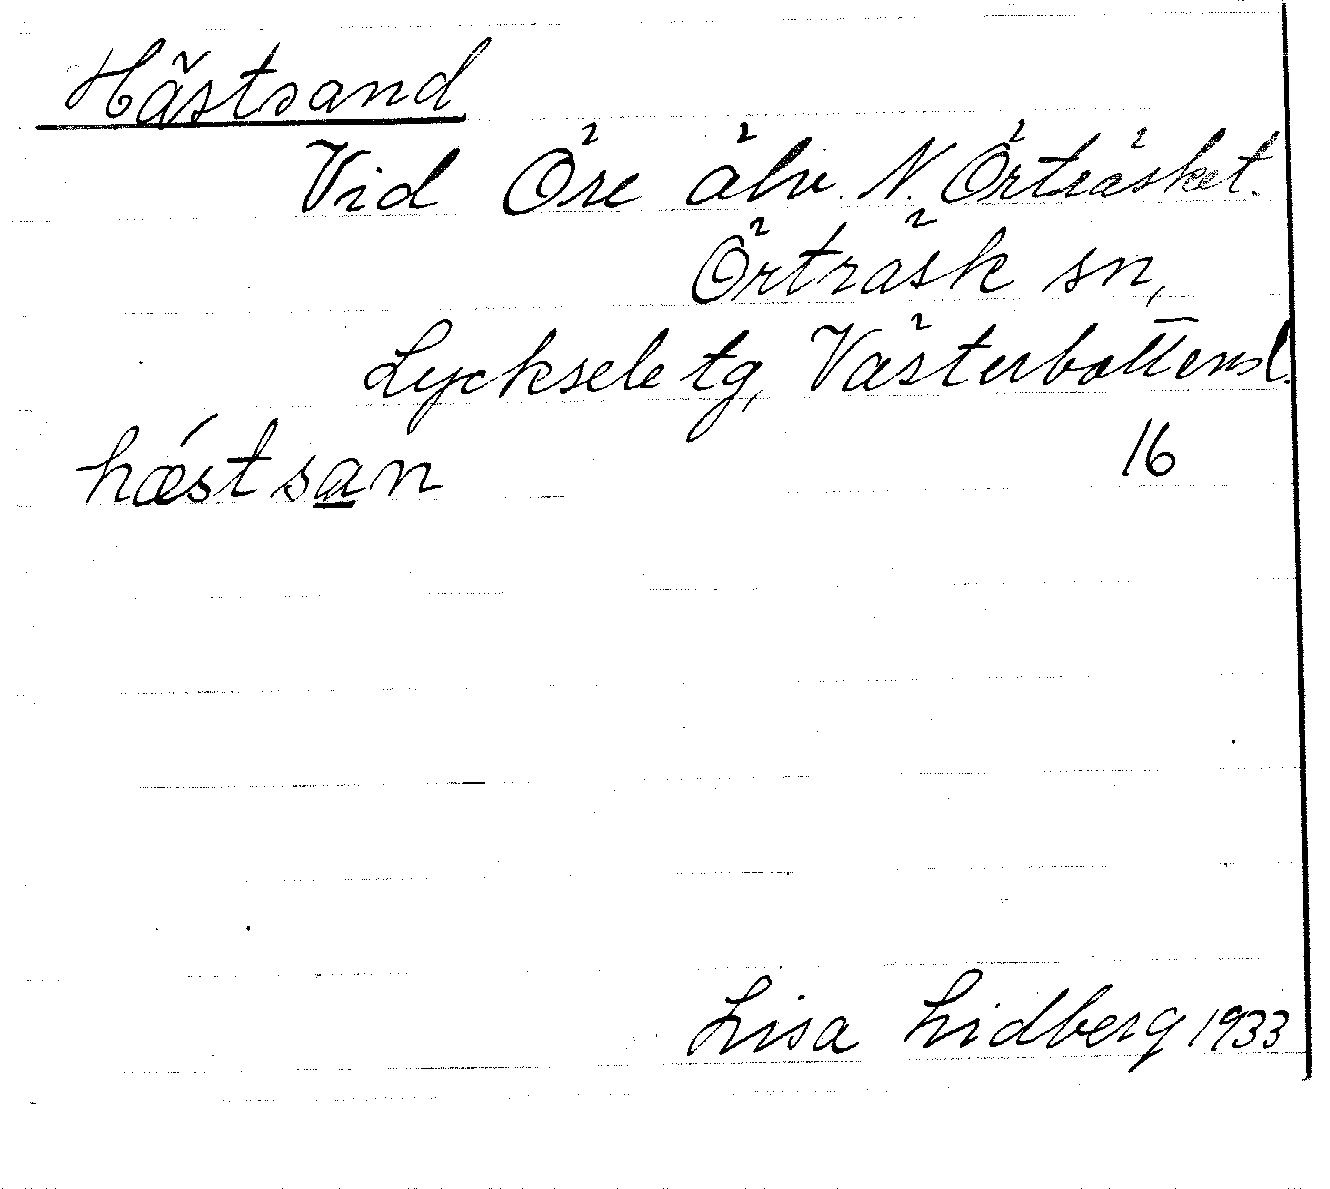 Hästsand
Vid Öre älv. N. Örträsket.
Örträsk sn,
Lycksele tg, Västerbottens l.
hǽstsan
16
Lisa Lidberg 1933